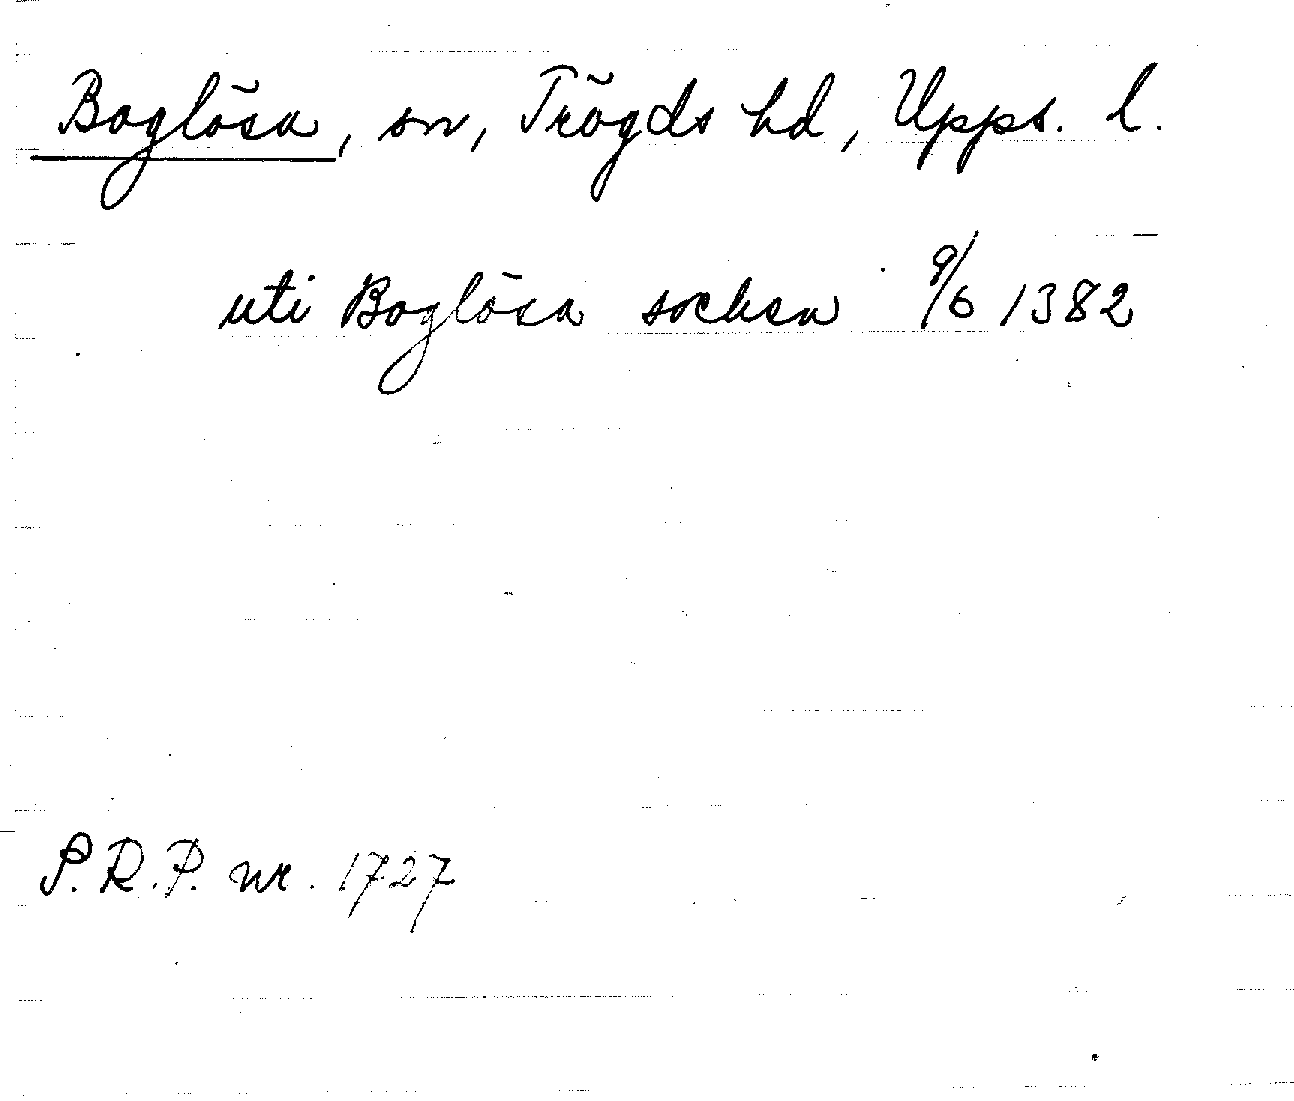 Boglösa, sn, Trögds hd, Upps. l.
uti Boglösa socken 9/6 1382
S.R.P. nr. 1727